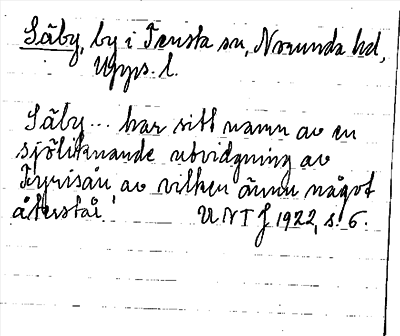 Säby, by i Tensta sn, Norunda hd,
Upps. l.
Säby... har sitt namn av en
sjöliknande utvidgning av
Fyrisån av vilken ännu något
återstår.! UNT J 1922, s. 6.